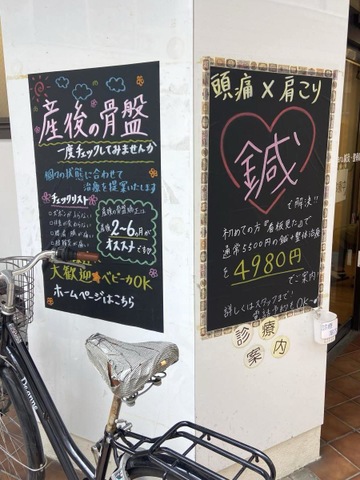 産後の骨盤
一度チェックしてみませんか
個々の状態に合わせて
治療を提案いたします
チェックリスト
産後の骨盤矯正は
産後2~6ヵ月が
オススメです
大歓迎 ベビーカOK
ホームページはこちら
頭痛×肩こり
鍼
で解決!!
初めての方 看板見たで
通常5500円の鍼+整体治療
を4980円
でご案内
詳しくはスタッフまで!
診療
案内